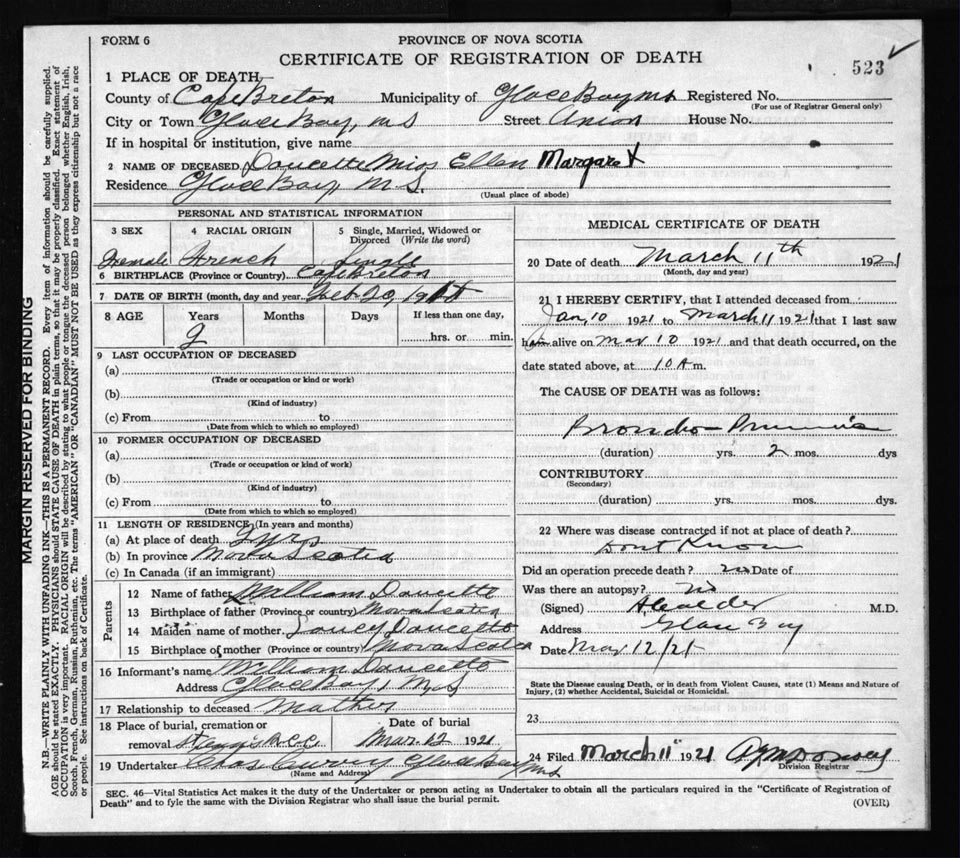 FORM 6
PROVINCE OF NOVA SCOTIA
CERTIFICATE OF REGISTRATION OF DEATH
523
1 PLACE OF DEATH
County of Cape Breton Municipality of Glace Bay Registered No.
(For use of Registrar General only)
City or Town Glace Bay, NS Street Union House No.
If in hospital or institution, give name
2 NAME OF DECEASED Doucette Miss Ellen Margaret
Residence Glace Bay, N.S.
(Usual place of abode)
PERSONAL AND STATISTICAL INFORMATION
3 SEX 4 RACIAL ORIGIN 5 Single, Married, Widowed or Divorced (Write the word)
Female French Single
6 BIRTHPLACE (Province or Country) Cape Breton
7 DATE OF BIRTH (month, day and year Feb 20, 19
8 AGE Years Months Days If less than one day,
hrs. or min.
9 LAST OCCUPATION OF DECEASED
(a)
(Trade or occupation or kind or work)
(b)
(Kind of industry)
(c) From to
(Date from which to which so employed)
10 FORMER OCCUPATION OF DECEASED
(a)
(Trade or occupation or kind of work)
(b)
(Kind of industry)
(c) From to
(Date from which to which so employed)
11 LENGTH OF RESIDENCE (In years and months)
(a) At place of death yrs
(b) In province Nova Scotia
(c) In Canada (if an immigrant)
Parents
12 Name of father William Doucette
13 Birthplace of father (Province or country) Nova Scotia
14 Maiden name of mother Doucette
15 Birthplace of mother (Province or country) Nova Scotia
16 Informant's name William Doucette
Address Glace Bay, N.S
17 Relationship to deceased
18 Place of burial, cremation or removal
Date of burial
Mar. 12 1921
19 Undertaker Chas Curry Glace Bay NS
(Name and Address)
MEDICAL CERTIFICATE OF DEATH
20 Date of death March 11th 1921
(Month, day and year)
21 I HEREBY CERTIFY, that I attended deceased from
Jan, 10 1921 to March 11 1921 that I last saw
alive on Mar 10 1921 and that death occurred, on the
date stated above, at 10 A m.
The CAUSE OF DEATH was as follows:
Broncho-Pneumonia
(duration) yrs. 2 mos. dys
CONTRIBUTORY
(Secondary)
(duration) yrs. mos. dys.
22 Where was disease contracted if not at place of death?
Dont Know
Did an operation precede death? no Date of
Was there an autopsy? no
(Signed) M.D.
Address Glace Bay
Date Mar 12/21
State the Disease causing Death, or in death from Violent Causes, state (1) Means and Nature of Injury, (2) whether Accidental, Suicidal or Homicidal.
23
24 Filed March 11" 1921
Division Registrar
SEC. 46—Vital Statistics Act makes it the duty of the Undertaker or person acting as Undertaker to obtain all the particulars required in the "Certificate of Registration of
Death" and to fyle the same with the Division Registrar who shall issue the burial permit.
(OVER)
MARGIN RESERVED FOR BINDING
N.B.—WRITE PLAINLY WITH UNFADING INK—THIS IS A PERMANENT RECORD. Every item of information should be carefully supplied.
AGE should be stated EXACTLY. PHYSICIANS should STATE CAUSE OF DEATH in plain terms, so that it may be properly classified. Exact statement of
OCCUPATION is very important. RACIAL ORIGIN will be described by stating to what people or tongue the deceased person belonged whether English, Irish,
Scotch, French, German, Russian, Ruthenian, etc. The terms "AMERICAN" OR "CANADIAN" MUST NOT BE USED as they express citizenship but not a race
or people. See instructions on back of Certificate.